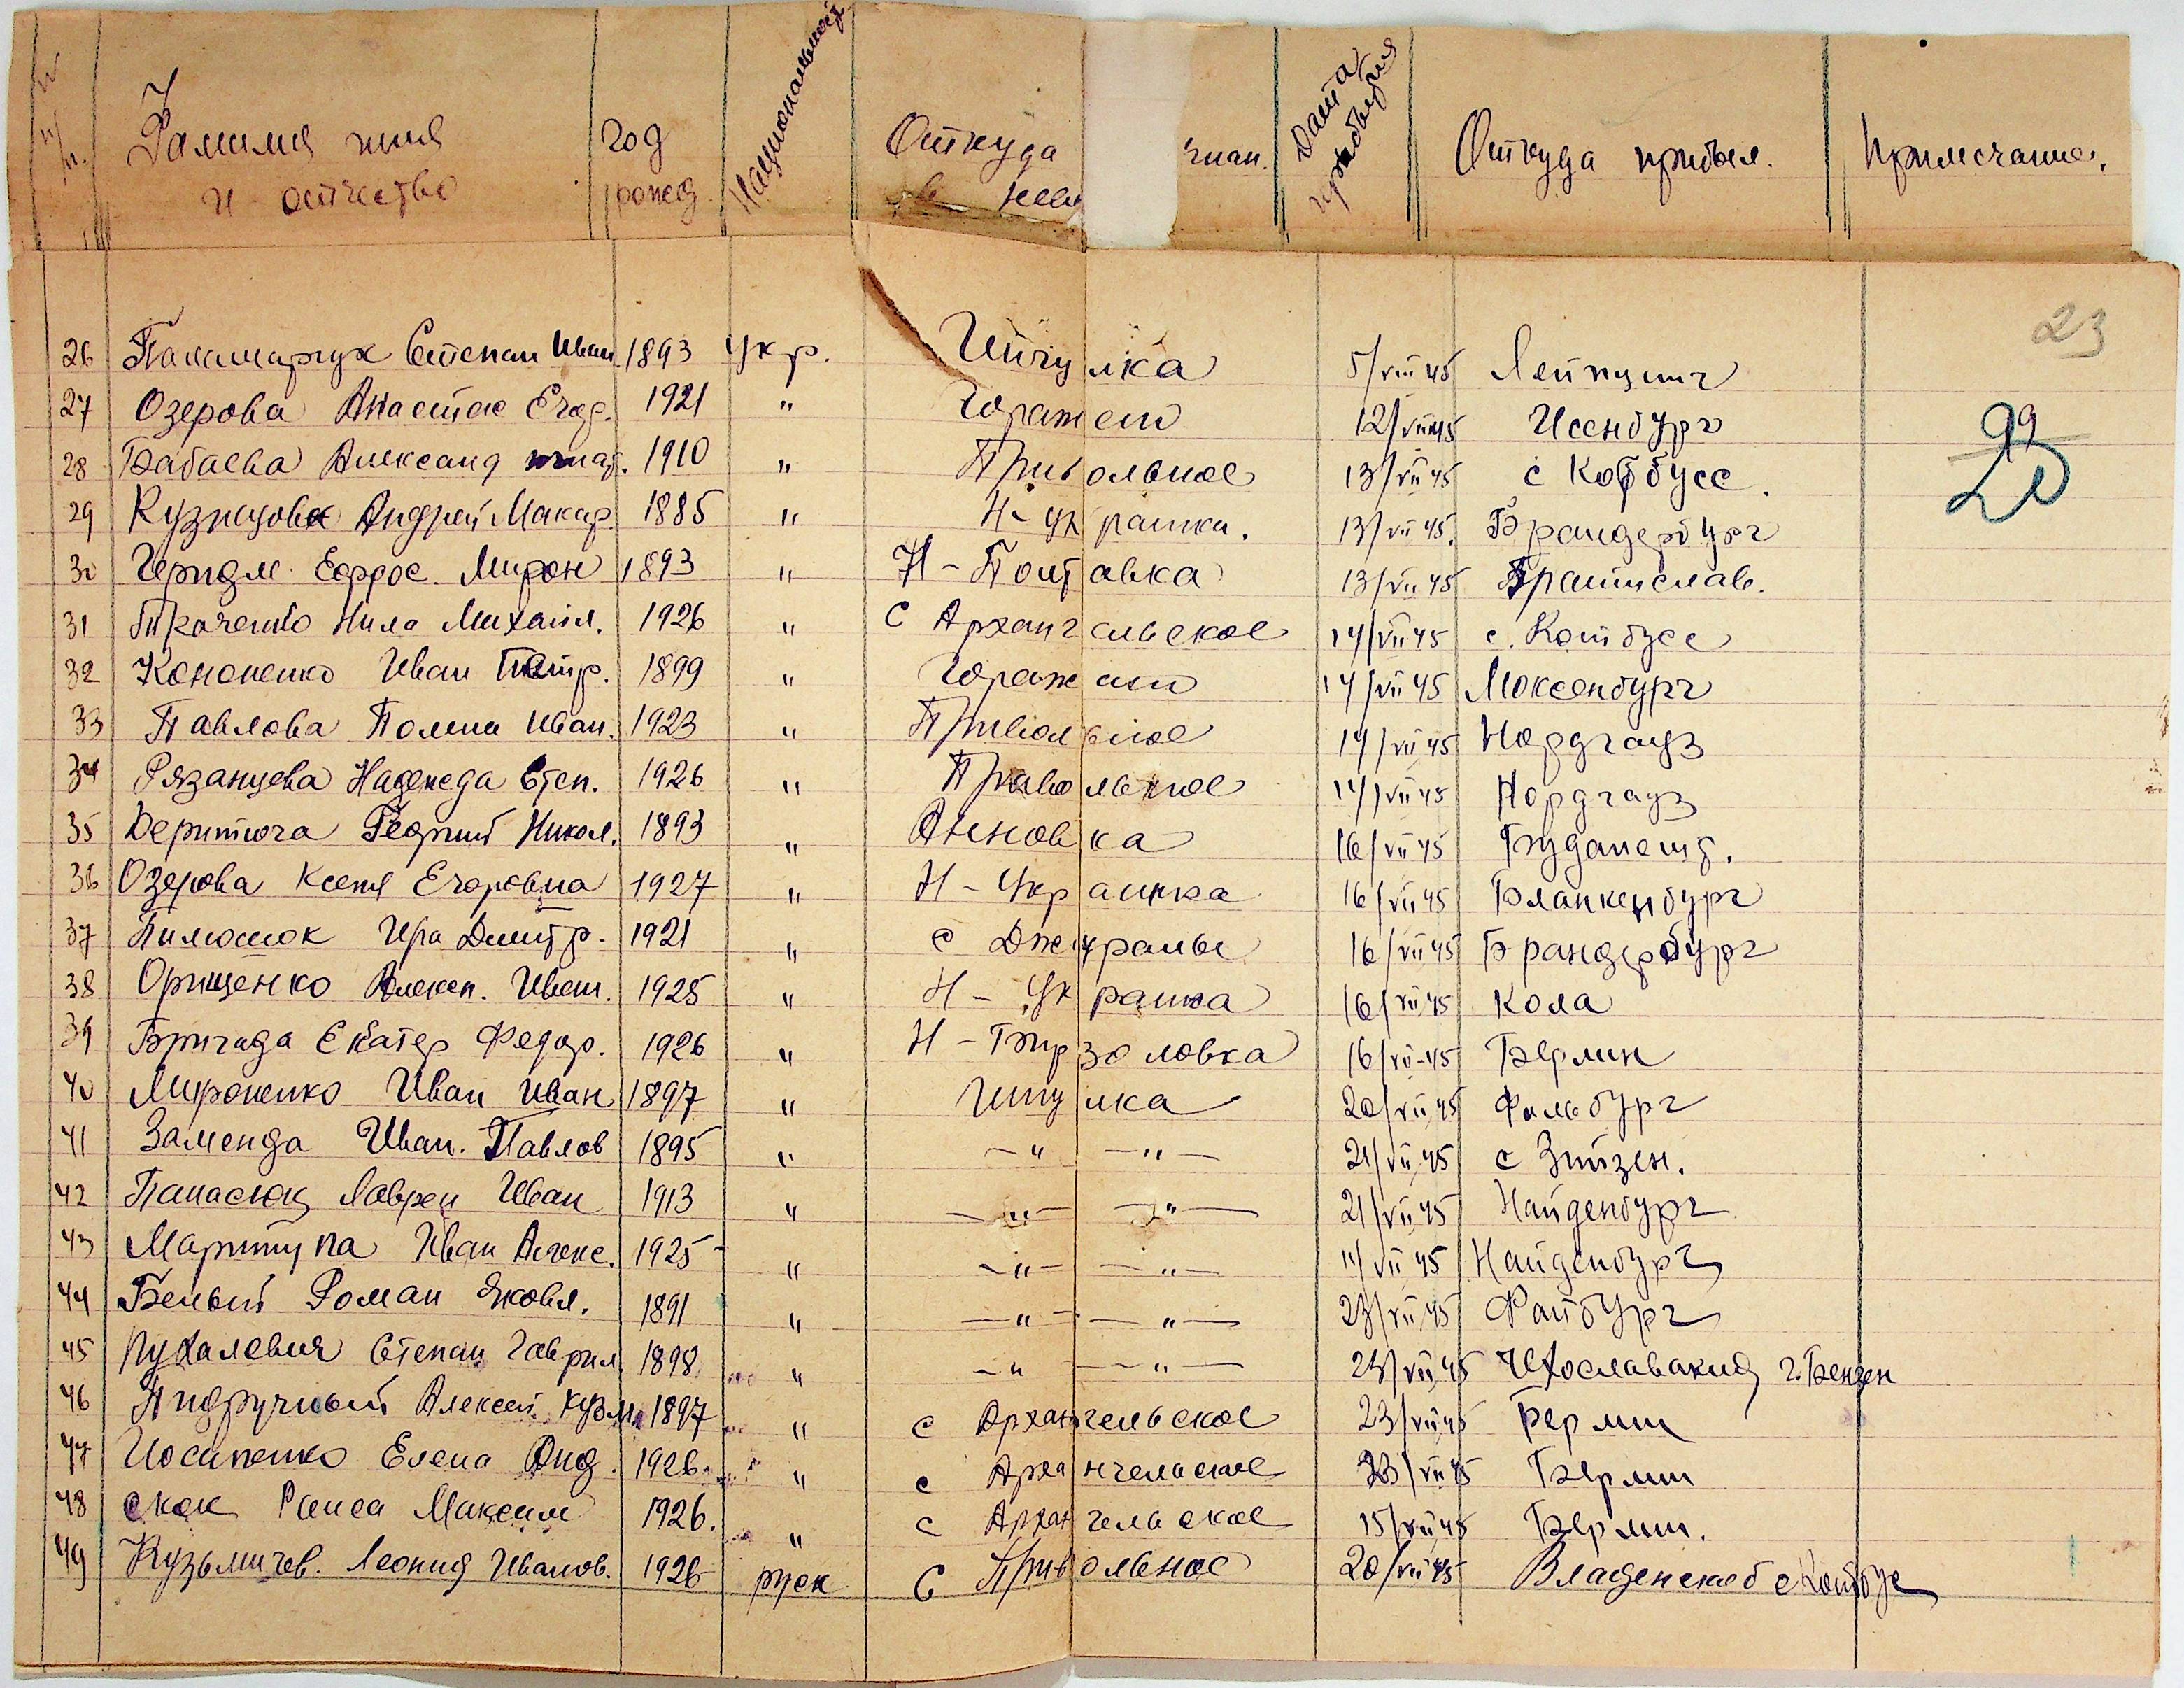 п п/п. Фамилия имя и отчество Год рожд Национальност Откуда чнан. Дата прибытия Откуда прибыл. Примечание.
23
99
25
26 Паламарчук Степан Иван 1893 укр. Ингулка 5/VII 45 Лейпциг
27 Озерова Анастас Егор. 1921 " Горажено 12/VII 45 Исенбург
28 Бабаева Александ игнат. 1910 " Привольное 13/VII 45 с Котбусс.
29 Кузнецова Андрей Макар. 1885 " Н-украинка. 13/VII 45. Брандербург
30 Еффрос. Мирон 1893 " Н-Полтавка 13/VII 45 Братислав.
31 Ткаченко Нила Михаил. 1926 " с Архангельское 14/VII 45 с. Котбусс
32 Кононенко Иван Петр. 1899 " 14/VII 45 Моксенбург
33 Павлова Полина Иван. 1923 " Привольное 14/VII 45 Нордгауз
34 Рязанцева Надежда Степ. 1926 " Привольное 14/VII 45 Нордгауз
35 Георгий Никол. 1893 " Анновка 16/VII 45 Будапешт.
36 Озерова Ксеня Егоровна 1927 " Н-Украинка 16/VII 45 Бланкенбург
37 Пилюшок Ира Дмитр. 1921 " с 16/VII 45 Брандербург
38 Орищенко Алексн. Иван. 1925 " Н-Украинка 16/VII 45 Кола
39 Бригада Екатер Федор. 1926 " Н-Бирзоловка 16/VII-45 Берлин
40 Мироненко Иван Иван 1897 " Ингулка 20/VII 45 Фальбург
41 Заменда Иван. Павлов 1895 " -"- -"- 21/VII 45 с
42 Панасюк Лаврен Иван 1913 " -"- -"- 21/VII 45 Найденбург
43 Мартынa Иван Алекс. 1925 - " -"- -"- VII 45 Найденбург
44 Белый Роман Яковл. 1891 " -"- -"- 23/VII 45 Файбург
45 Пухалевич Степан Гаврил 1898 " -"- -"- 23/VII 45 Чехославакия г. Бензен
46 Пидручный Алексей кузм. 1897 " с Архангельское 23/VII 45 Берлин
47 Иосипенко Елена Анд. 1926. " с Архангельское 23/VII 45 Берлин
48 скок Раиса Максим 1926. " с Архангельское 15/VII 45 Берлин.
49 Кузьмичев. Леонид Иванов. 1926 руск с Привольное 20/VII 45